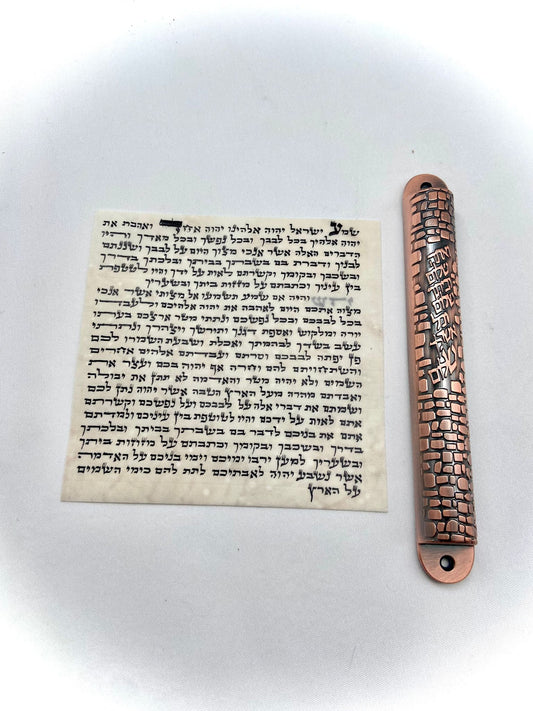 שמע ישראל יהוה אלהינו יהוה ואהבת את
יהוה אלהיך בכל לבבך ובכל נפשך ובכל מאדך והיו
הדברים האלה אשר אנכי מצוך היום על לבבך ושננתם
לבניך ודברת בם בשבתך בביתך ובלכתך בדרך
ובשכבך ובקומך וקשרתם לאות על ידך והיו לטטפת
בין עיניך וכתבתם על מזזות ביתך ובשעריך
והיה אם שמע תשמעו אל מצותי אשר אנכי
מצוה אתכם היום לאהבה את יהוה אלהיכם ולעבדו
בכל לבבכם ובכל נפשכם ונתתי מטר ארצכם בעתו
יורה ומלקוש ואספת דגנך ותירשך ויצהרך ונתתי
עשב בשדך לבהמתך ואכלת ושבעת השמרו לכם
פן יפתה לבבכם וסרתם ועבדתם אלהים אחרים
והשתחויתם להם וחרה אף יהוה בכם ועצר את
השמים ולא יהיה מטר והאדמה לא תתן את יבולה
ואבדתם מהרה מעל הארץ הטבה אשר יהוה נתן לכם
ושמתם את דברי אלה על לבבכם ועל נפשכם וקשרתם
אתם לאות על ידכם והיו לטוטפת בין עיניכם ולמדתם
אתם את בניכם לדבר בם בשבתך בביתך ובלכתך
בדרך ובשכבך ובקומך וכתבתם על מזוזות ביתך
ובשעריך למען ירבו ימיכם וימי בניכם על האדמה
אשר נשבע יהוה לאבתיכם לתת להם כימי השמים
על הארץ
אתה
שלום
וביתך
שלום
וכל
אשר
לך
שלום